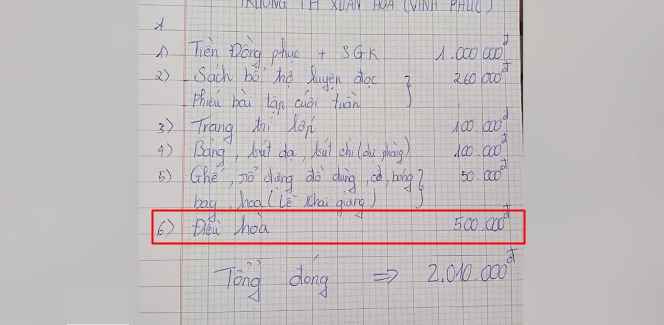 TRƯỜNG TH XUÂN HÒA (VĨNH PHÚC)
1) Tiền Đồng phục + SGK 1.000.000đ
2) Sách bổ trợ luyện đọc 260.000đ
Phiếu bài tập cuối tuần
3) Trang trí lớp 100.000đ
4) Bảng, bút dạ, bút chì (dự phòng) 100.000đ
5) Ghế, rổ đựng đồ dùng, cờ, bóng 50.000đ
bay, hoa (Lễ khai giảng)
6) Điều hòa 500.000đ
Tổng đóng => 2.010.000đ